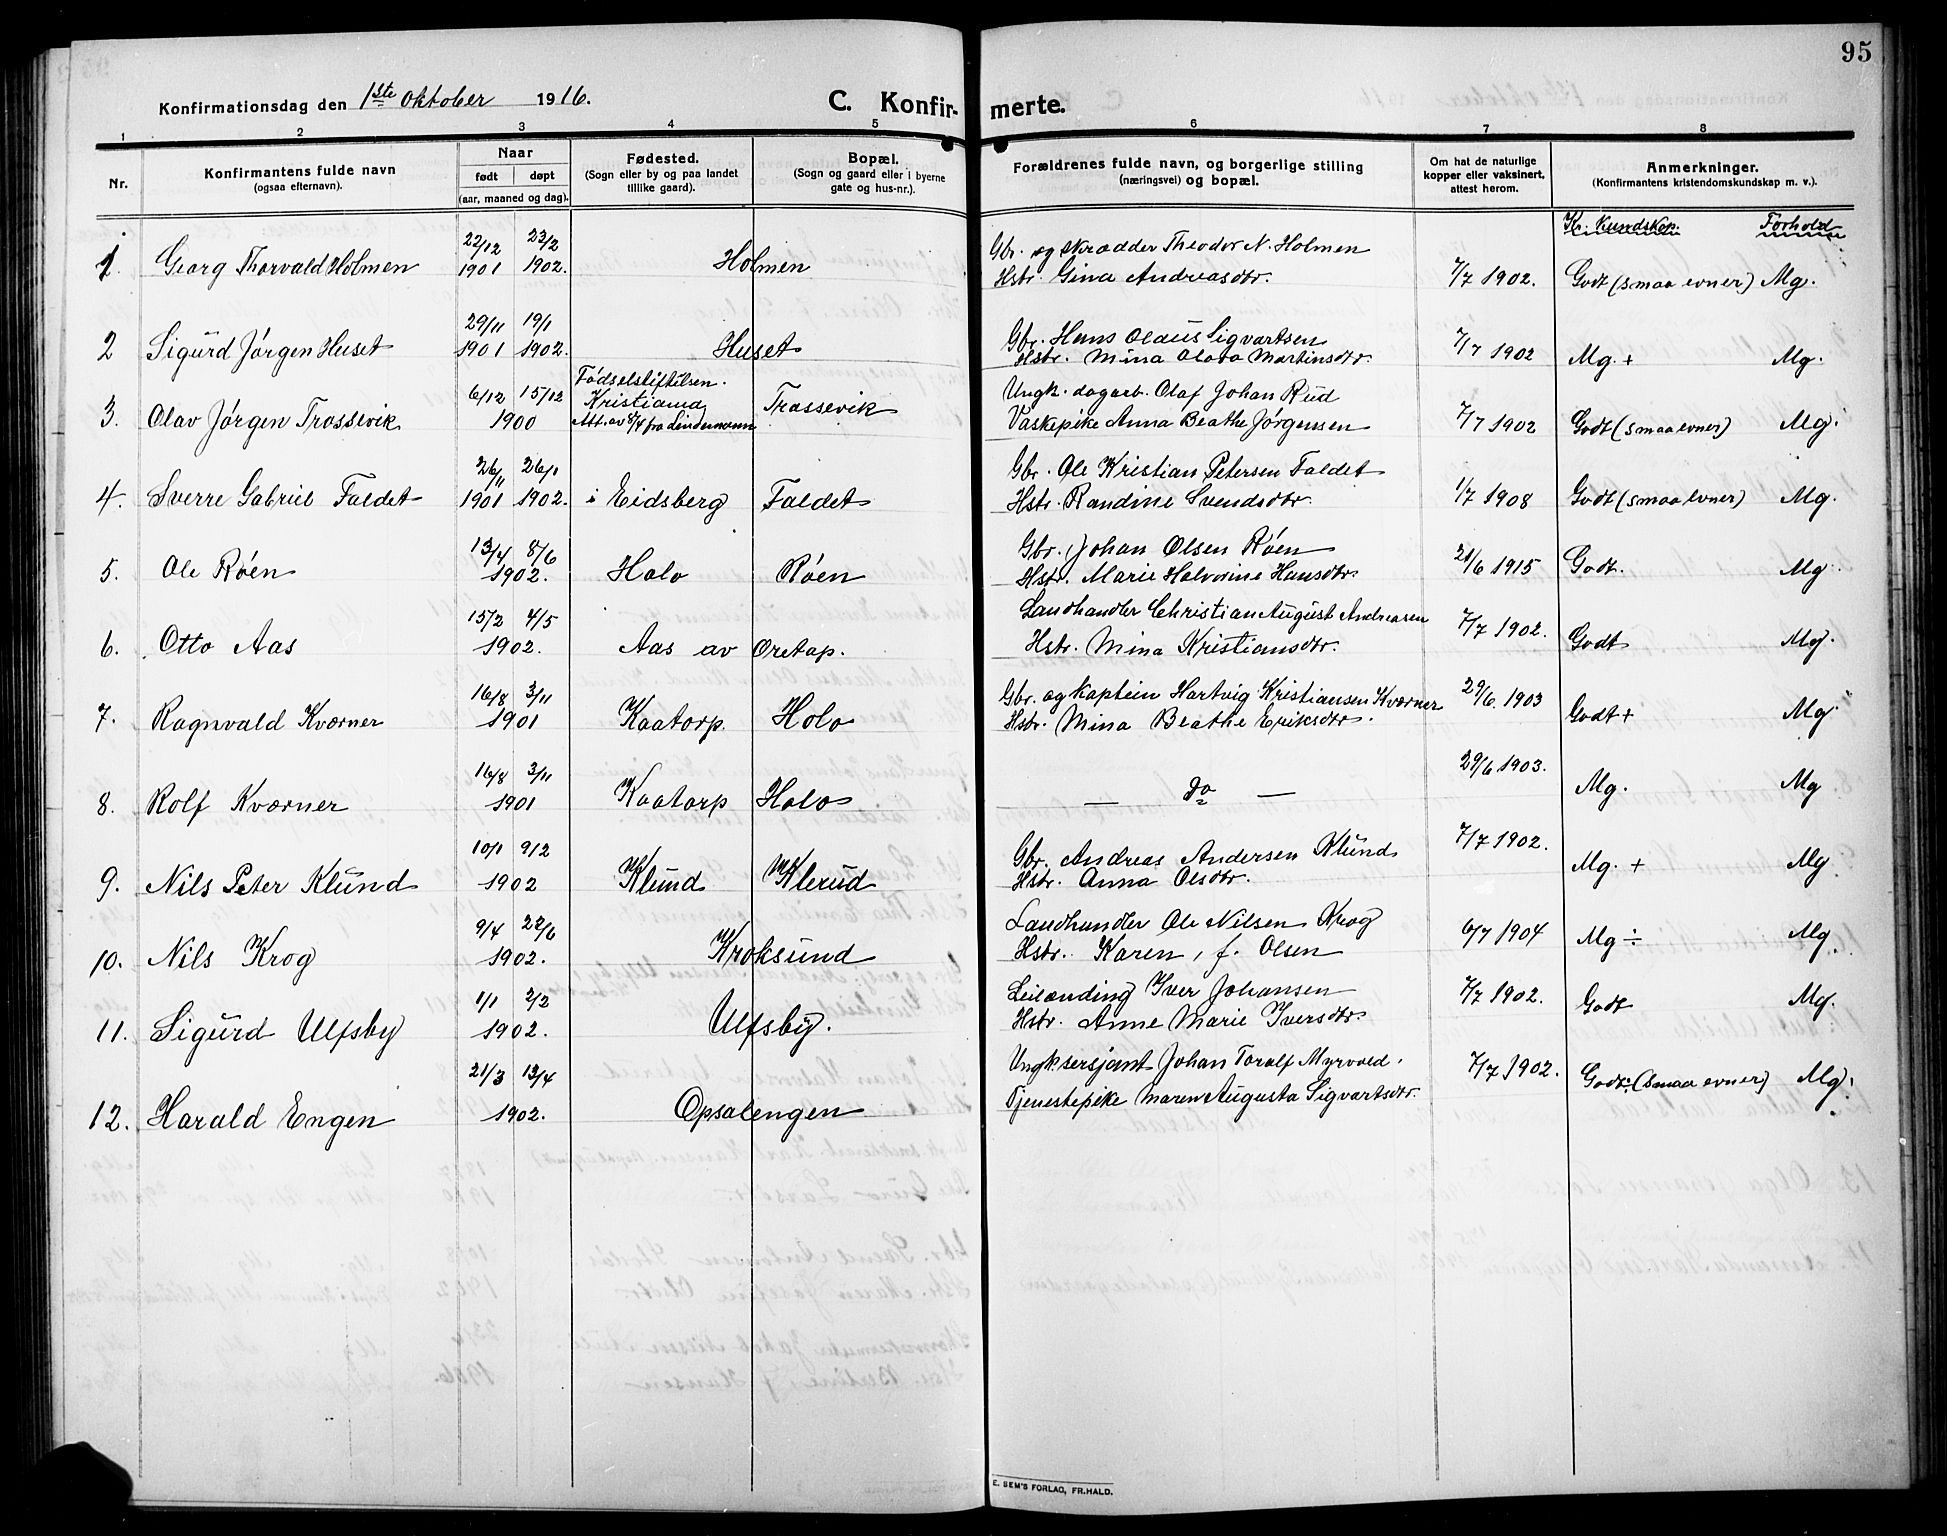 95
Konfirmationsdag den 1ste oktober 1916.
C. Konfirmerte.
1 2 3 4 5 6 7 8
Nr.
Konfirmantens fulde navn
(ogsaa efternavn).
Naar
født døpt
(aar, maaned og dag).
Fødested.
(Sogn eller by og paa landet
tillike gaard).
Bopæl.
(Sogn og gaard eller i byerne
gate og hus-nr.).
Forældrenes fulde navn, og borgerlige stilling
(næringsvei) og bopæl.
Om hat de naturlige
kopper eller vaksinert,
attest herom.
Anmerkninger.
(Konfirmantens kristendomskundskap m. v.).
Kr. kundskap Forhold
22/12 23/2 Gbr. og skrædder Theodor N. Holmen
1. Georg Thorvald Holmen 1901 1902. Holmen Hstr. Gina Andreasdtr. 7/7 1902. Godt (smaa evner) Mg.
29/11 19/1 Gbr. Hans Olaus Sigvartsen
2 Sigurd Jørgen Huset 1901 1902. Huset Hstr. Mina Olava Martinsdtr. 7/7 1902 Mg. + Mg.
6/12 15/12 Fødselstiftelsen. Ungk. dagarb. Olaf Johan Rud
Kristiania
3. Olav Jørgen Trossevik 1900 Att. av 8/4 fra Lindemann Trossevik Vaskepike Anna Beathe Jørgensen 7/7 1902 Godt (smaa evner) Mg.
26/11 26/1 Gbr. Ole Kristian Petersen Faldet
4. Sverre Gabriel Faldet 1901 1902. i Eidsberg Faldet Hstr. Randine Svendsdtr. 1/7 1908 Godt (smaa evner) Mg.
13/4 8/6 Gbr. Johan Olsen Røen
5. Ole Røen 1902. Holo Røen Hstr. Marie Halvorine Hansdtr. 21/6 1915 Godt. Mg.
15/2 4/5 Landhandler Christian August Andreasen
6. Otto Aas 1902. Aas av Oretop. Hstr. Mina Kristiansdtr. 7/7 1902. Godt Mg.
16/8 3/11 Gbr. og kaptein Hartvig Kristiansen Kværner
7. Ragnvald Kværner 1901 Kaatorp. Holo Hstr. Mina Beathe Eriksdtr. 29/6 1903 Godt + Mg.
16/8 3/11
8. Rolf Kværner 1901 Kaatorp Holo — do — 29/6 1903. Mg. Mg
10/1 9/2 Gbr. Andreas Andersen Klund
9. Nils Peter Klund 1902 Klund Klerud Hstr. Anna Olsdtr. 7/7 1902. Mg. + Mg
9/4 22/6 Landhandler Ole Nilsen Krog
10. Nils Krog 1902. Kroksund Hstr. Karen, f. Olsen 6/7 1904 Mg ÷ Mg.
1/1 2/2 Leilænding Iver Johansen
11. Sigurd Ulfsby 1902. Ulfsby. Hstr. Anne Marie Iversdtr. 7/7 1902. Godt Mg.
21/3 13/4 Ungk. sersjant Johan Toralf Myrvold.
12. Harald Engen 1902. Opsalengen Tjenestepike Maren Augusta Sigvartsdtr. 7/7 1902. Godt (smaa evner) Mg.
E. SEM'S FORLAG, FR.HALD.